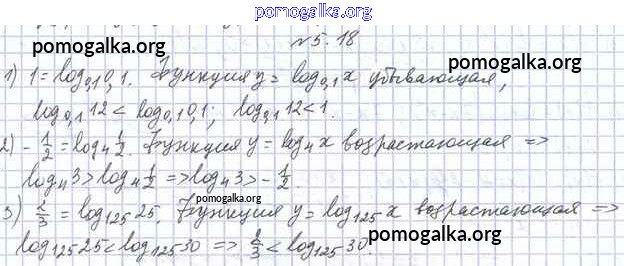 pomogalka.org
pomogalka.org
№5.18
pomogalka.org
1) 1=log₀,₁0,1. Функция y=log₀,₁x убывающая,
log₀,₁12<log₀,₁0,1; log₀,₁12<1.
pomogalka.org
2) -1/2=log₄1/2. Функция y=log₄x возрастающая =>
log₄3>log₄1/2 =>log₄3>-1/2.
pomogalka.org
3) 2/3=log₁₂₅25. Функция y=log₁₂₅x возрастающая =>
log₁₂₅25<log₁₂₅30 => 2/3<log₁₂₅30.
pomogalka.org
pomogalka.org